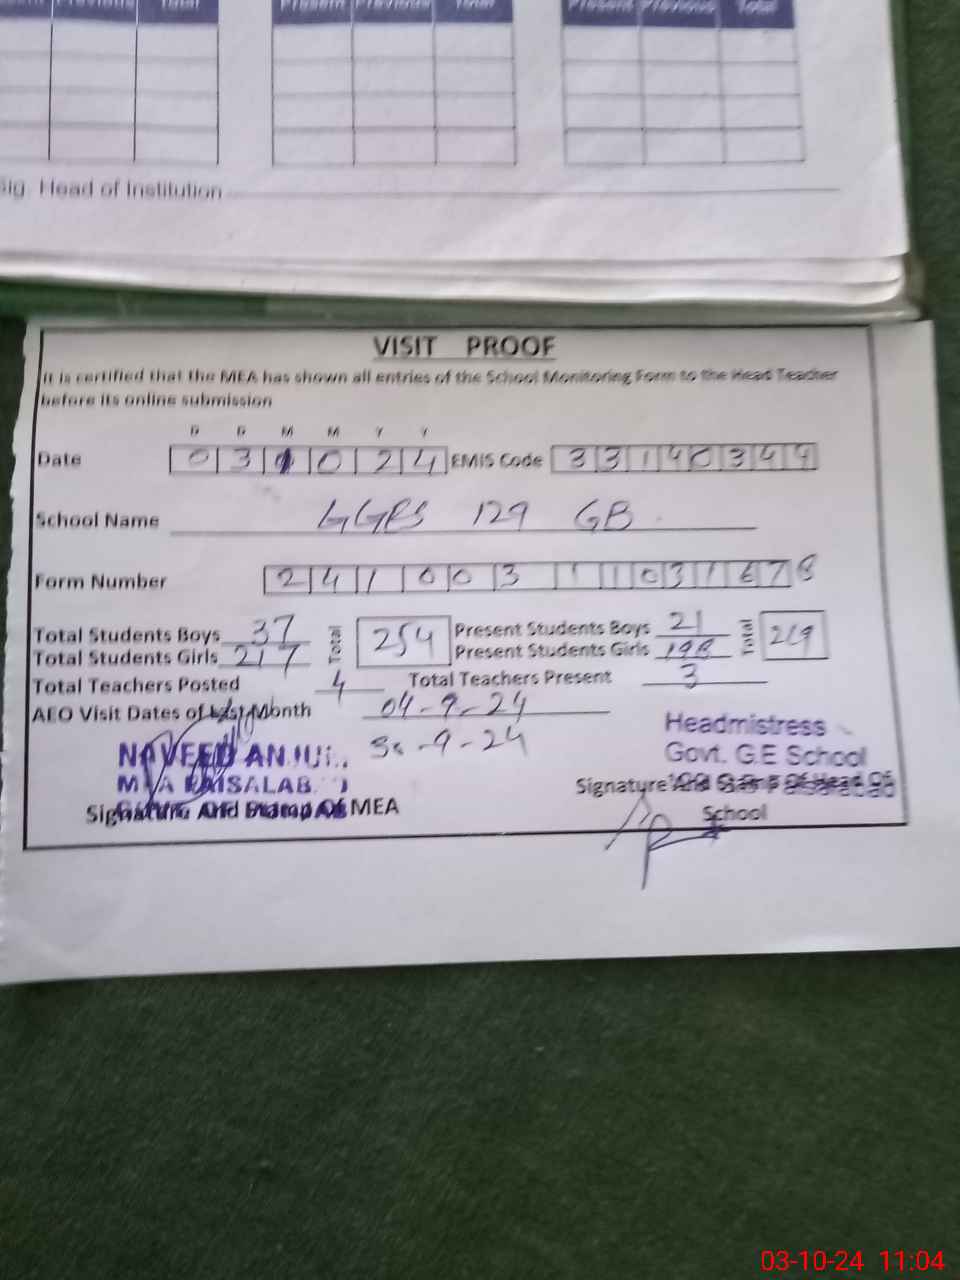 Present Previous Total
Present Previous Total
Present Previous Total
Sig. Head of Institution
VISIT PROOF
It is certified that the MEA has shown all entries of the School Monitoring Form to the Head Teacher
before its online submission
D D M M Y Y
Date 03 10 24 EMIS Code 33140344
School Name GGES 129 GB
Form Number 241003 11031678
Total Students Boys 37 Total 254 Present Students Boys 21 Total 219
Total Students Girls 217 Present Students Girls 198
Total Teachers Posted 4 Total Teachers Present 3
AEO Visit Dates of Last Month 04-9-24
30-9-24
NAVEED ANJUM
MEA FAISALABAD
Signature And Stamp Of MEA
Headmistress
Govt. G.E School
Signature And Stamp Of Head Of
School
03-10-24 11:04